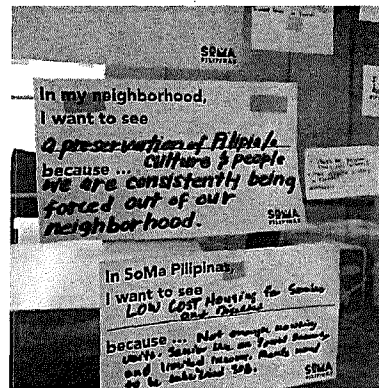 SOMA
PILIPINAS
In my neighborhood,
I want to see
a preservation of Filipin/o
culture & people
because ...
we are consistently being
forced out of our
neighborhood.
SOMA
PILIPINAS
In SoMa Pilipinas,
I want to see
LOW COST Housing for Seniors
and
because ... Not enough housing
units. Seniors live on fixed
and limited income. Rents need
to be
SOMA
PILIPINAS